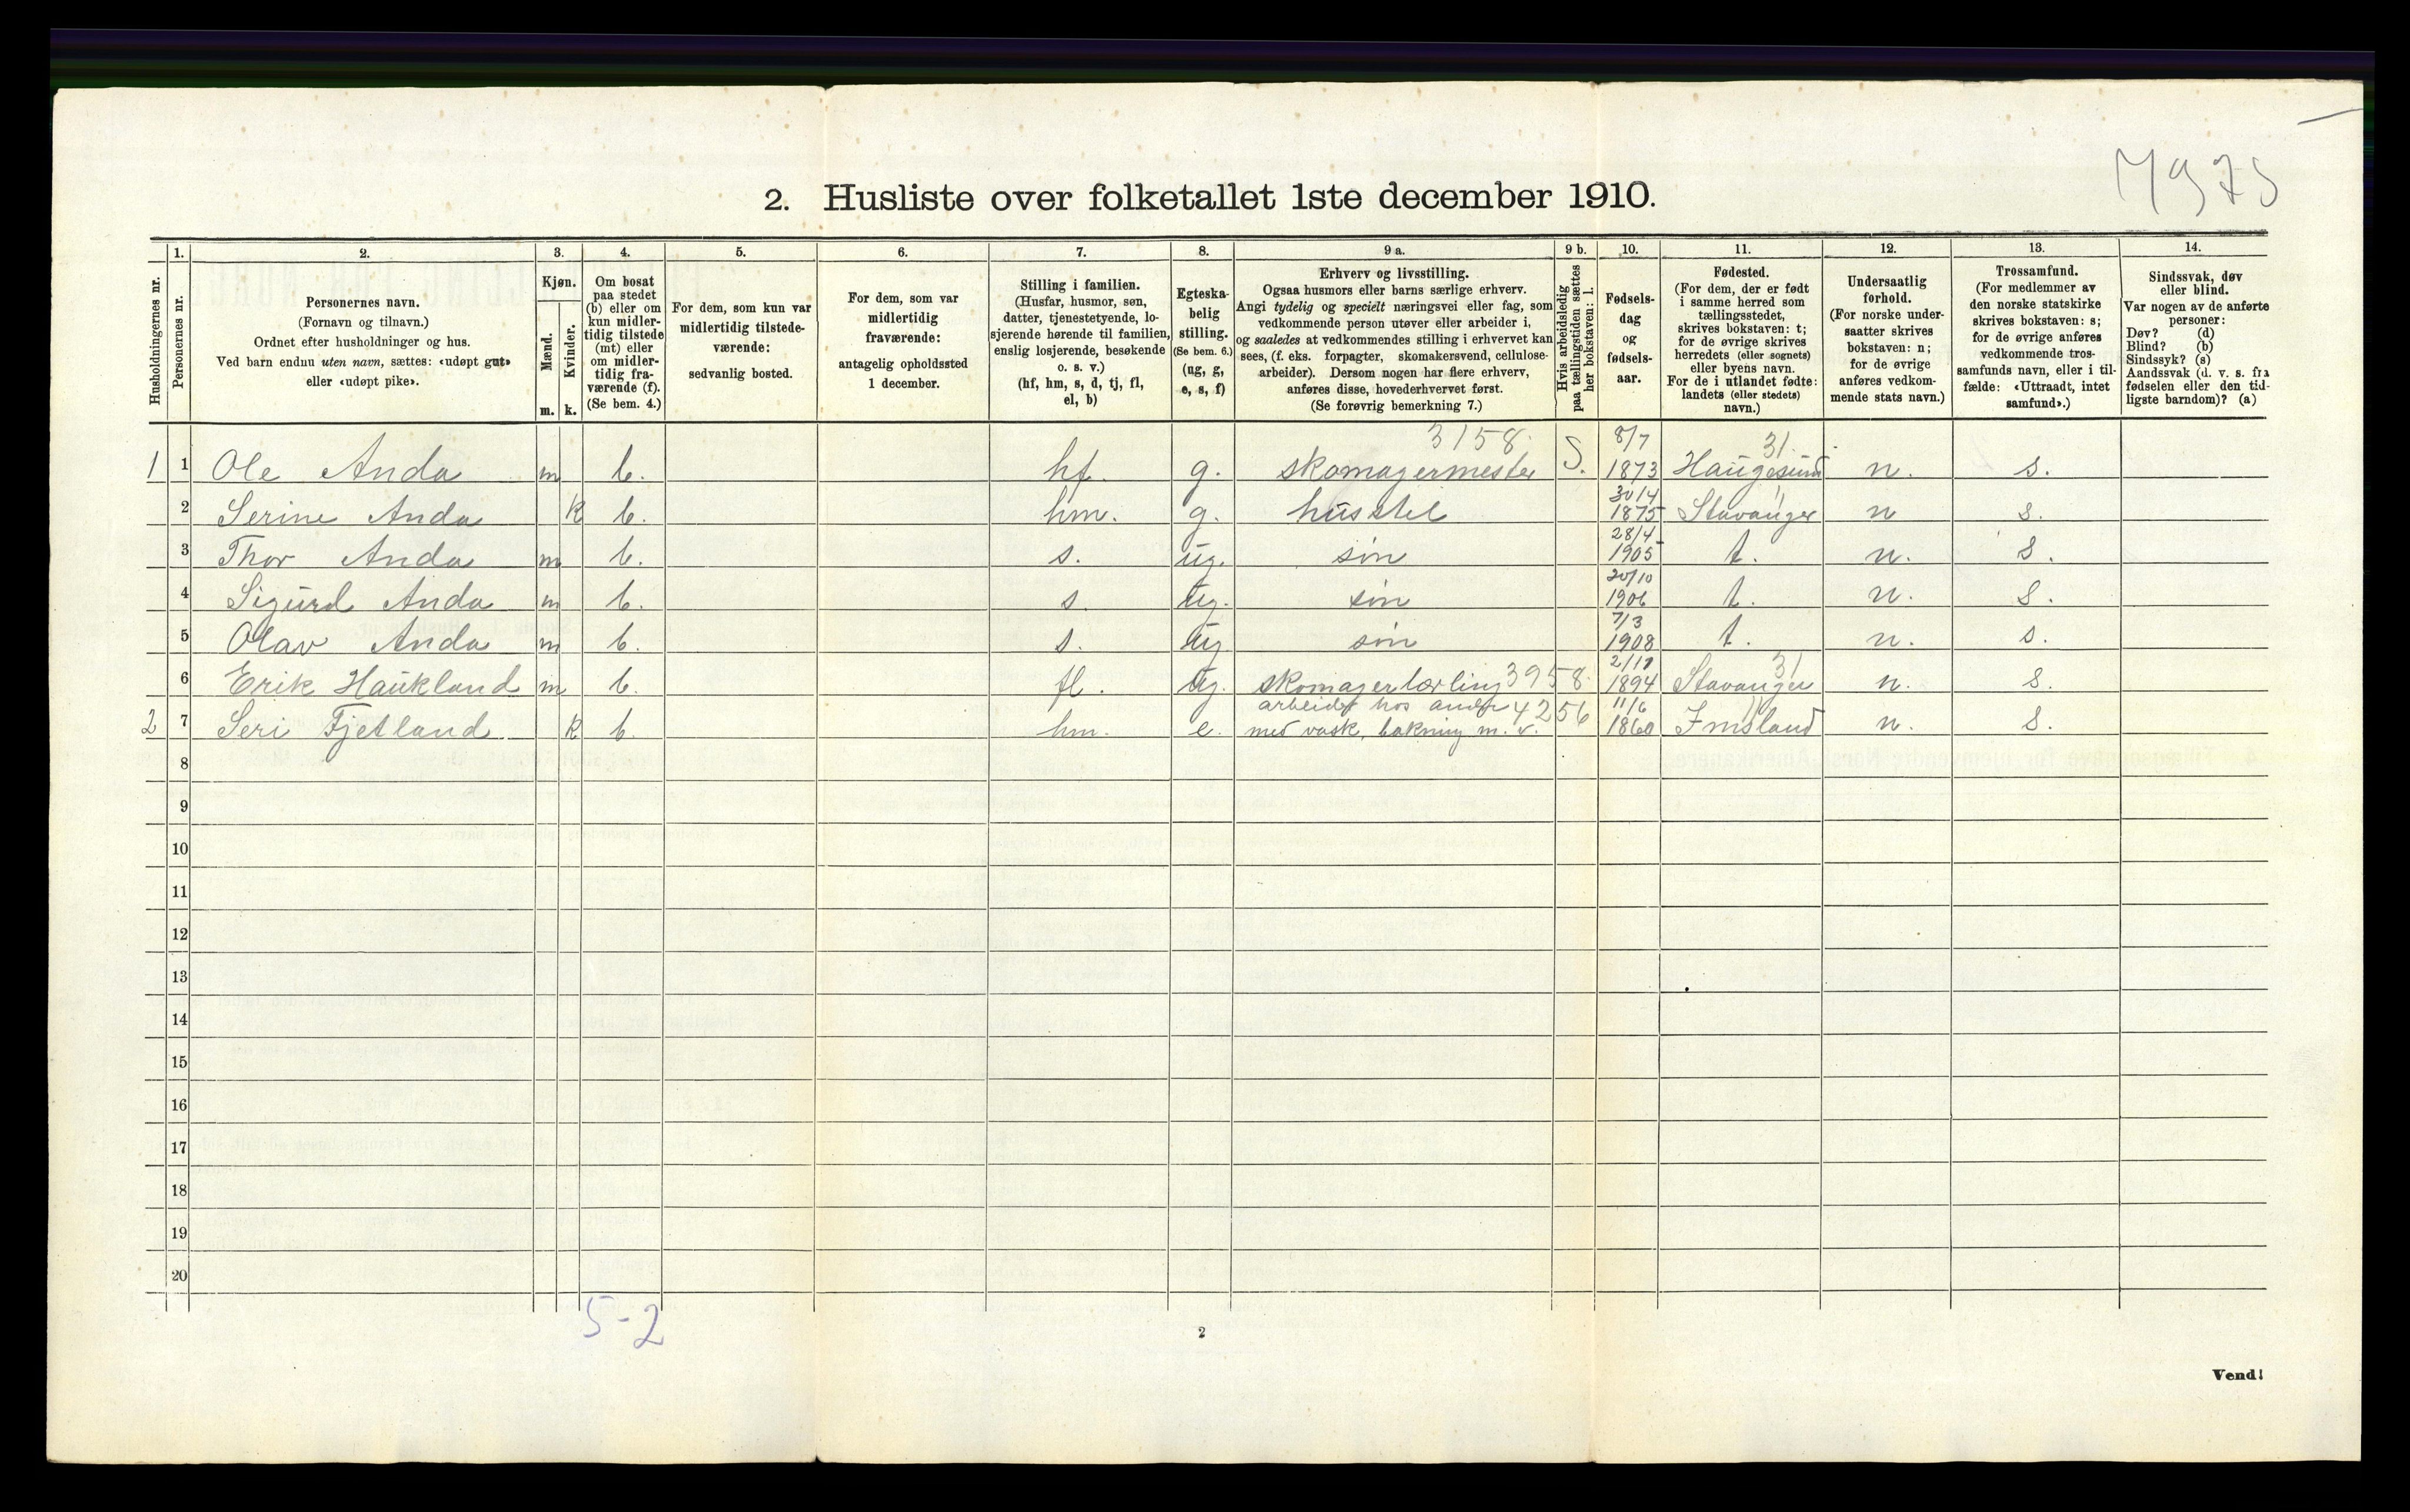 7975
2. Husliste over folketallet 1ste december 1910.
Husholdningernes nr.
1.
Personernes nr.
2.
Personernes navn.
(Fornavn og tilnavn.)
Ordnet efter husholdninger og hus.
Ved barn endnu uten navn, sættes: «udøpt gut»
eller «udøpt pike».
3.
Kjøn.
Mænd.
m.
Kvinder.
k.
4.
Om bosat
paa stedet
(b) eller om
kun midler-
tidig tilstede
(mt) eller
om midler-
tidig fra-
værende (f).
(Se bem. 4.)
5.
For dem, som kun var
midlertidig tilstede-
værende:
sedvanlig bosted.
6.
For dem, som var
midlertidig
fraværende:
antagelig opholdssted
1 december.
7.
Stilling i familien.
(Husfar, husmor, søn,
datter, tjenestetyende, lo-
sjerende hørende til familien,
enslig losjerende, besøkende
o. s. v.)
(hf, hm, s, d, tj, fl,
el, b)
8.
Egteska-
belig
stilling.
(Se bem. 6.)
(ug, g,
e, s, f)
9 a.
Erhverv og livsstilling.
Ogsaa husmors eller barns særlige erhverv.
Angi tydelig og specielt næringsvei eller fag, som
vedkommende person utøver eller arbeider i,
og saaledes at vedkommendes stilling i erhvervet kan
sees, (f. eks. forpagter, skomakersvend, cellulose-
arbeider). Dersom nogen har flere erhverv,
anføres disse, hovederhvervet først.
(Se forøvrig bemerkning 7.)
9 b.
Hvis arbeidsledig
paa tællingstiden sættes
her bokstaven: l.
10.
Fødsels-
dag
og
fødsels-
aar.
11.
Fødested.
(For dem, der er født
i samme herred som
tællingsstedet,
skrives bokstaven: t;
for de øvrige skrives
herredets (eller sognets)
eller byens navn.
For de i utlandet fødte:
landets (eller stedets)
navn.)
12.
Undersaatlig
forhold.
(For norske under-
saatter skrives
bokstaven: n;
for de øvrige
anføres vedkom-
mende stats navn.)
13.
Trossamfund.
(For medlemmer av
den norske statskirke
skrives bokstaven: s;
for de øvrige anføres
vedkommende tros-
samfunds navn, eller i til-
fælde: «Uttraadt, intet
samfund».)
14.
Sindssvak, døv
eller blind.
Var nogen av de anførte
personer:
Døv? (d)
Blind? (b)
Sindssyk? (s)
Aandssvak (d. v. s. fra
fødselen eller den tid-
ligste barndom)? (a)
3158. 8/7 31.
1 1 Ole Anda m b. hf. g. skomagermester S. 1873 Haugesund n. s.
30/4
2 Serine Anda k b. hm. g. husstel 1875 Stavanger n s.
28/4
3 Thor Anda m b. s. ug. søn 1905 t. n. s.
20/10
4 Sigurd Anda m b. s. ug. søn 1906 t. n. s.
7/3
5 Olav Anda m b. s. ug søn 1908 t. n. s.
2/11 31
6 Erik Haukland m b. fl. ug. skomagerlærling 3958. 1894 Stavanger n. s.
arbeider hos andre 4256 11/6
2 7 Seri Fjetland k b. hm. e. med vask, bakning m. v. 1860 Imsland n. s.
8
9
10
11
12
13
14
15
16
17
18
19
20
5-2
2
Vend!